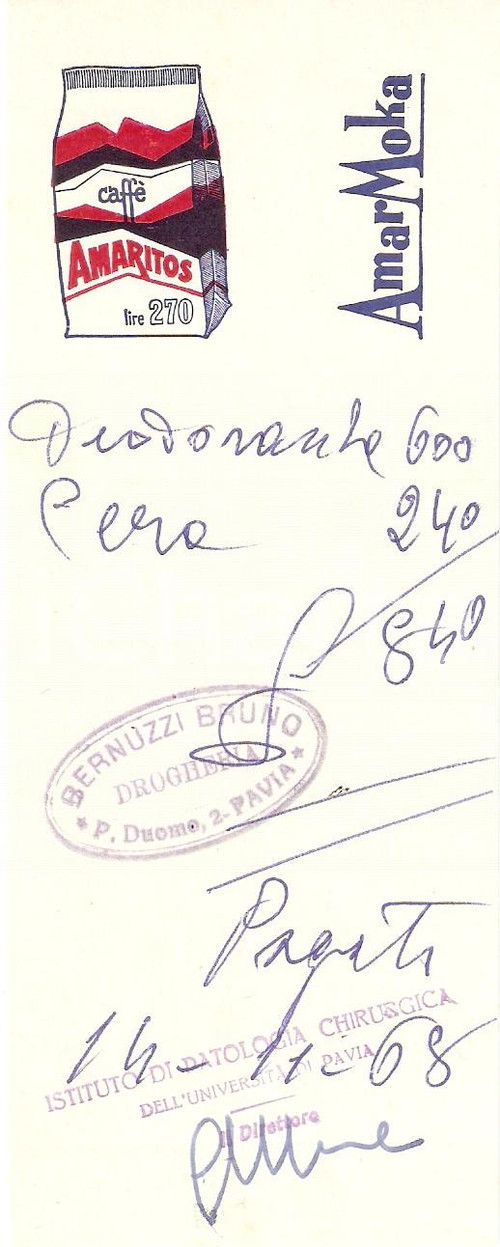 caffè
AMARITOS
lire 270
AmarMoka
Deodorante 600
Cera 240
840
BERNUZZI BRUNO
DROGHERIA
P. Duomo, 2-PAVIA
Pagato
14-11-68
ISTITUTO DI PATOLOGIA CHIRURGICA
DELL'UNIVERSITÀ DI PAVIA
Il Direttore